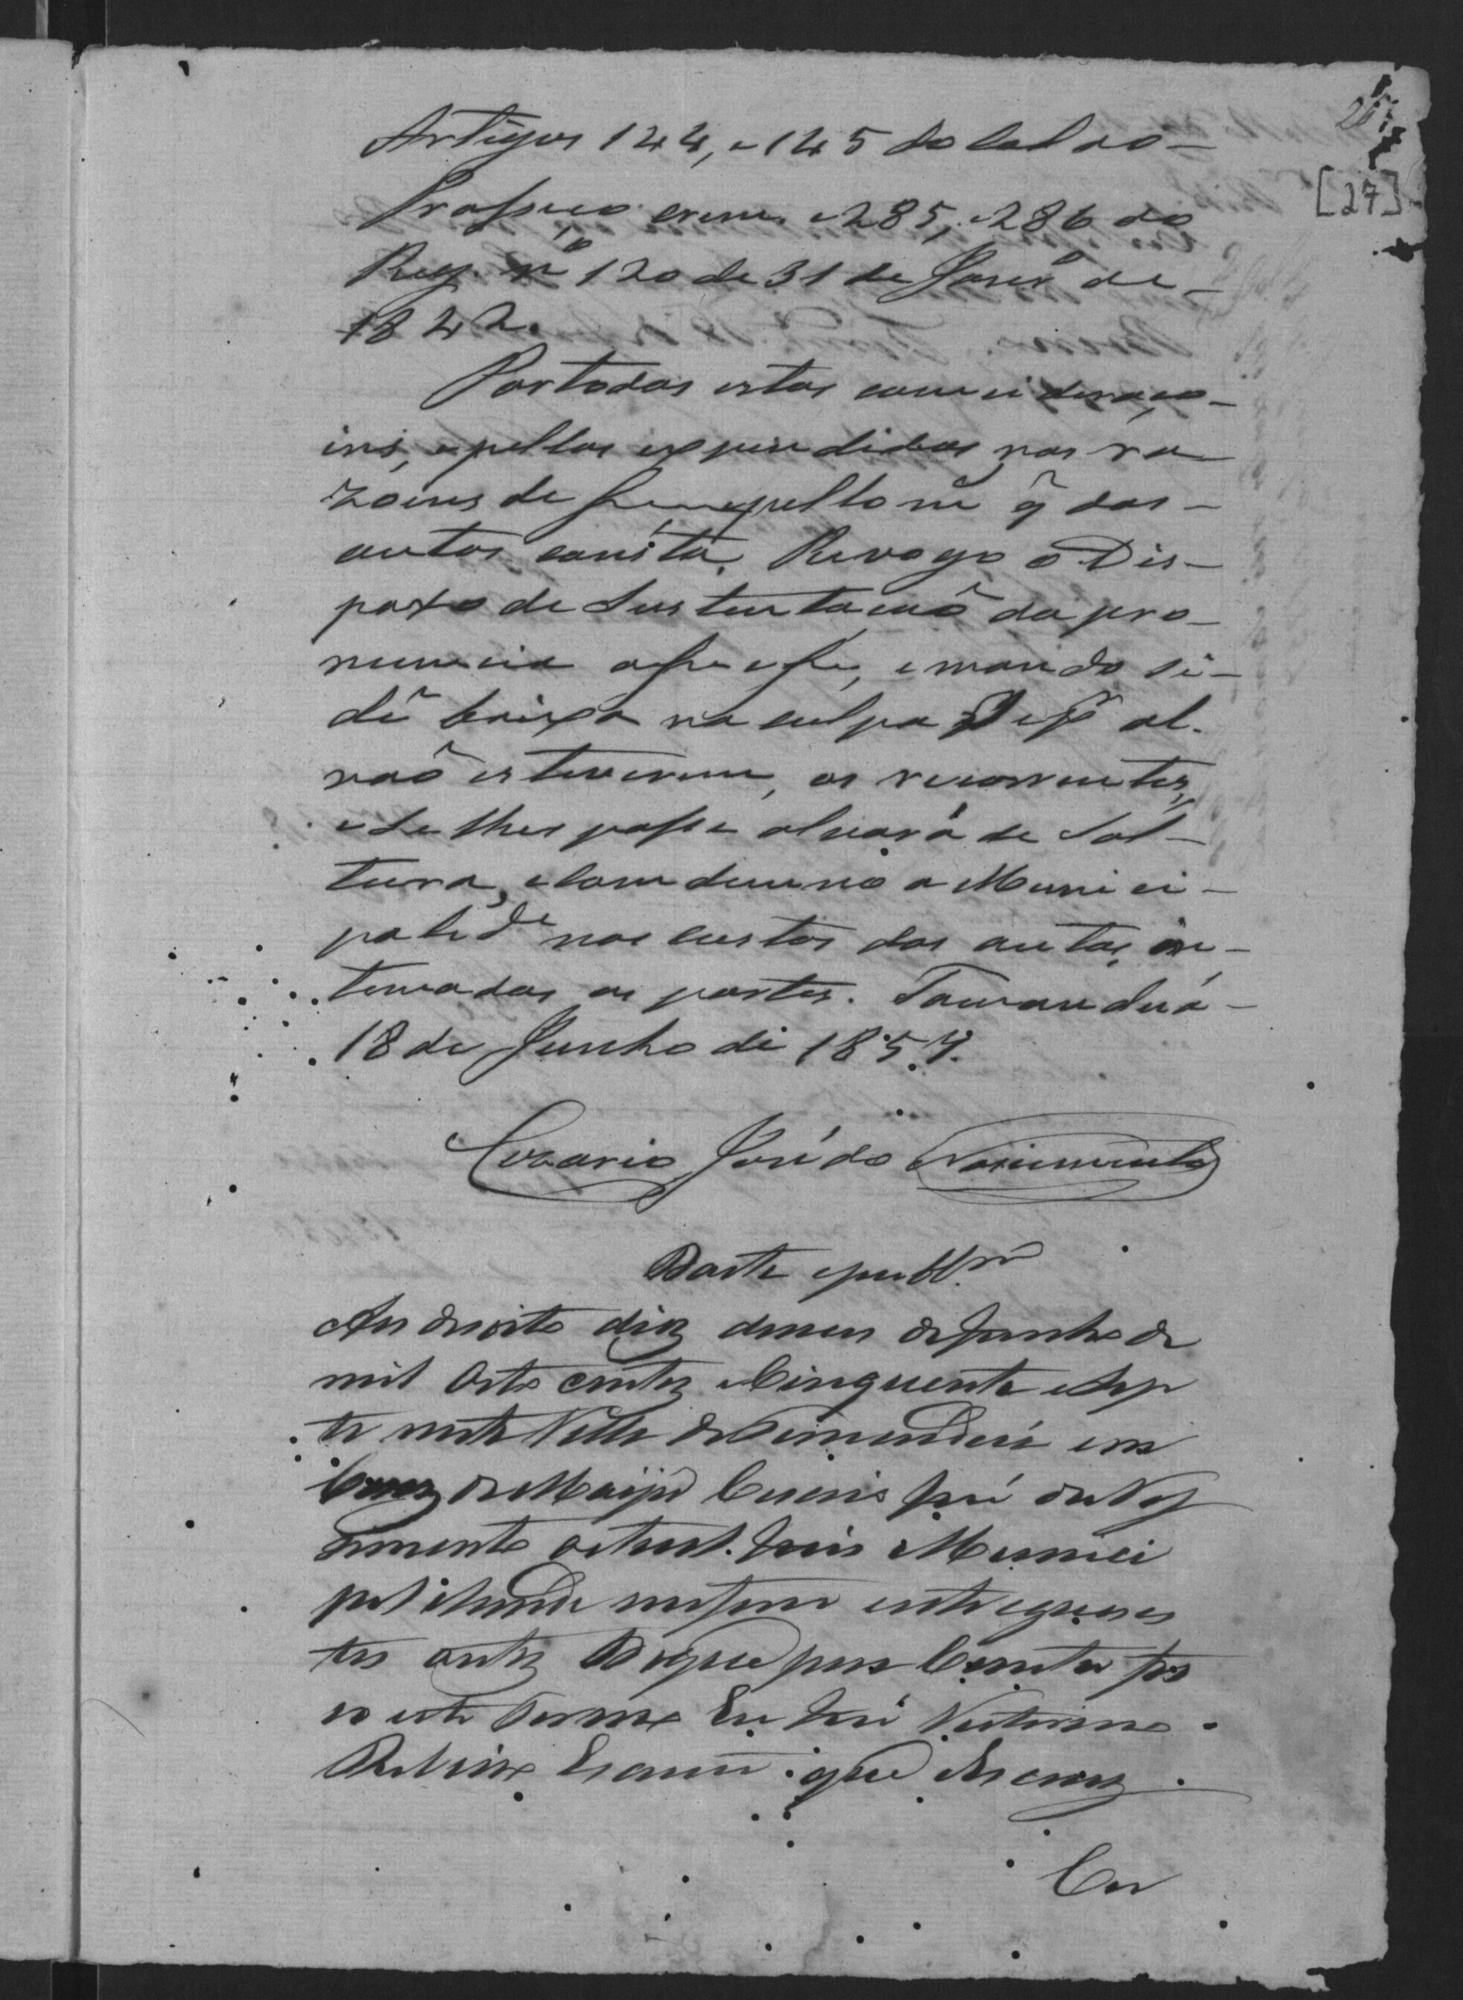 26
[27]
Artigos 144, e 145 do Cod do
Processo crime e 285, e 286 do
Reg. nº 120 de 31 de Janrº de
1842.
Por todas estas considera,co-
ins, e pellas expendidas nas ra
zoens de pello q̃ dos
autos consta, Revogo o Dis-
paxo de Sustentacaõ da pro-
nuncia e mando se
dê baixa na culpa al.
naõ estiverem, os recorrentes,
e Se lhes passe alvará de Sol-
tura, e Comdemno a Munici-
palidᵉ nas custas dos autos, in-
temadas as partes. Tamanduá
18 de Junho de 1857.
Cezario José do Nascimento
Data e publᵐ
Aos desoito dias do mes de Junho de
mil oito centos e Cinquenta e Sep
te nesta Villa de Tamanduá em
Caza do Major Cesario José do Nas
cimento actual Juis Munici
pal e sendo me foram entregues es
tes autos do que para Constar fa
so este Termo Eu José Victorino
Escram que Escrevy
Cer